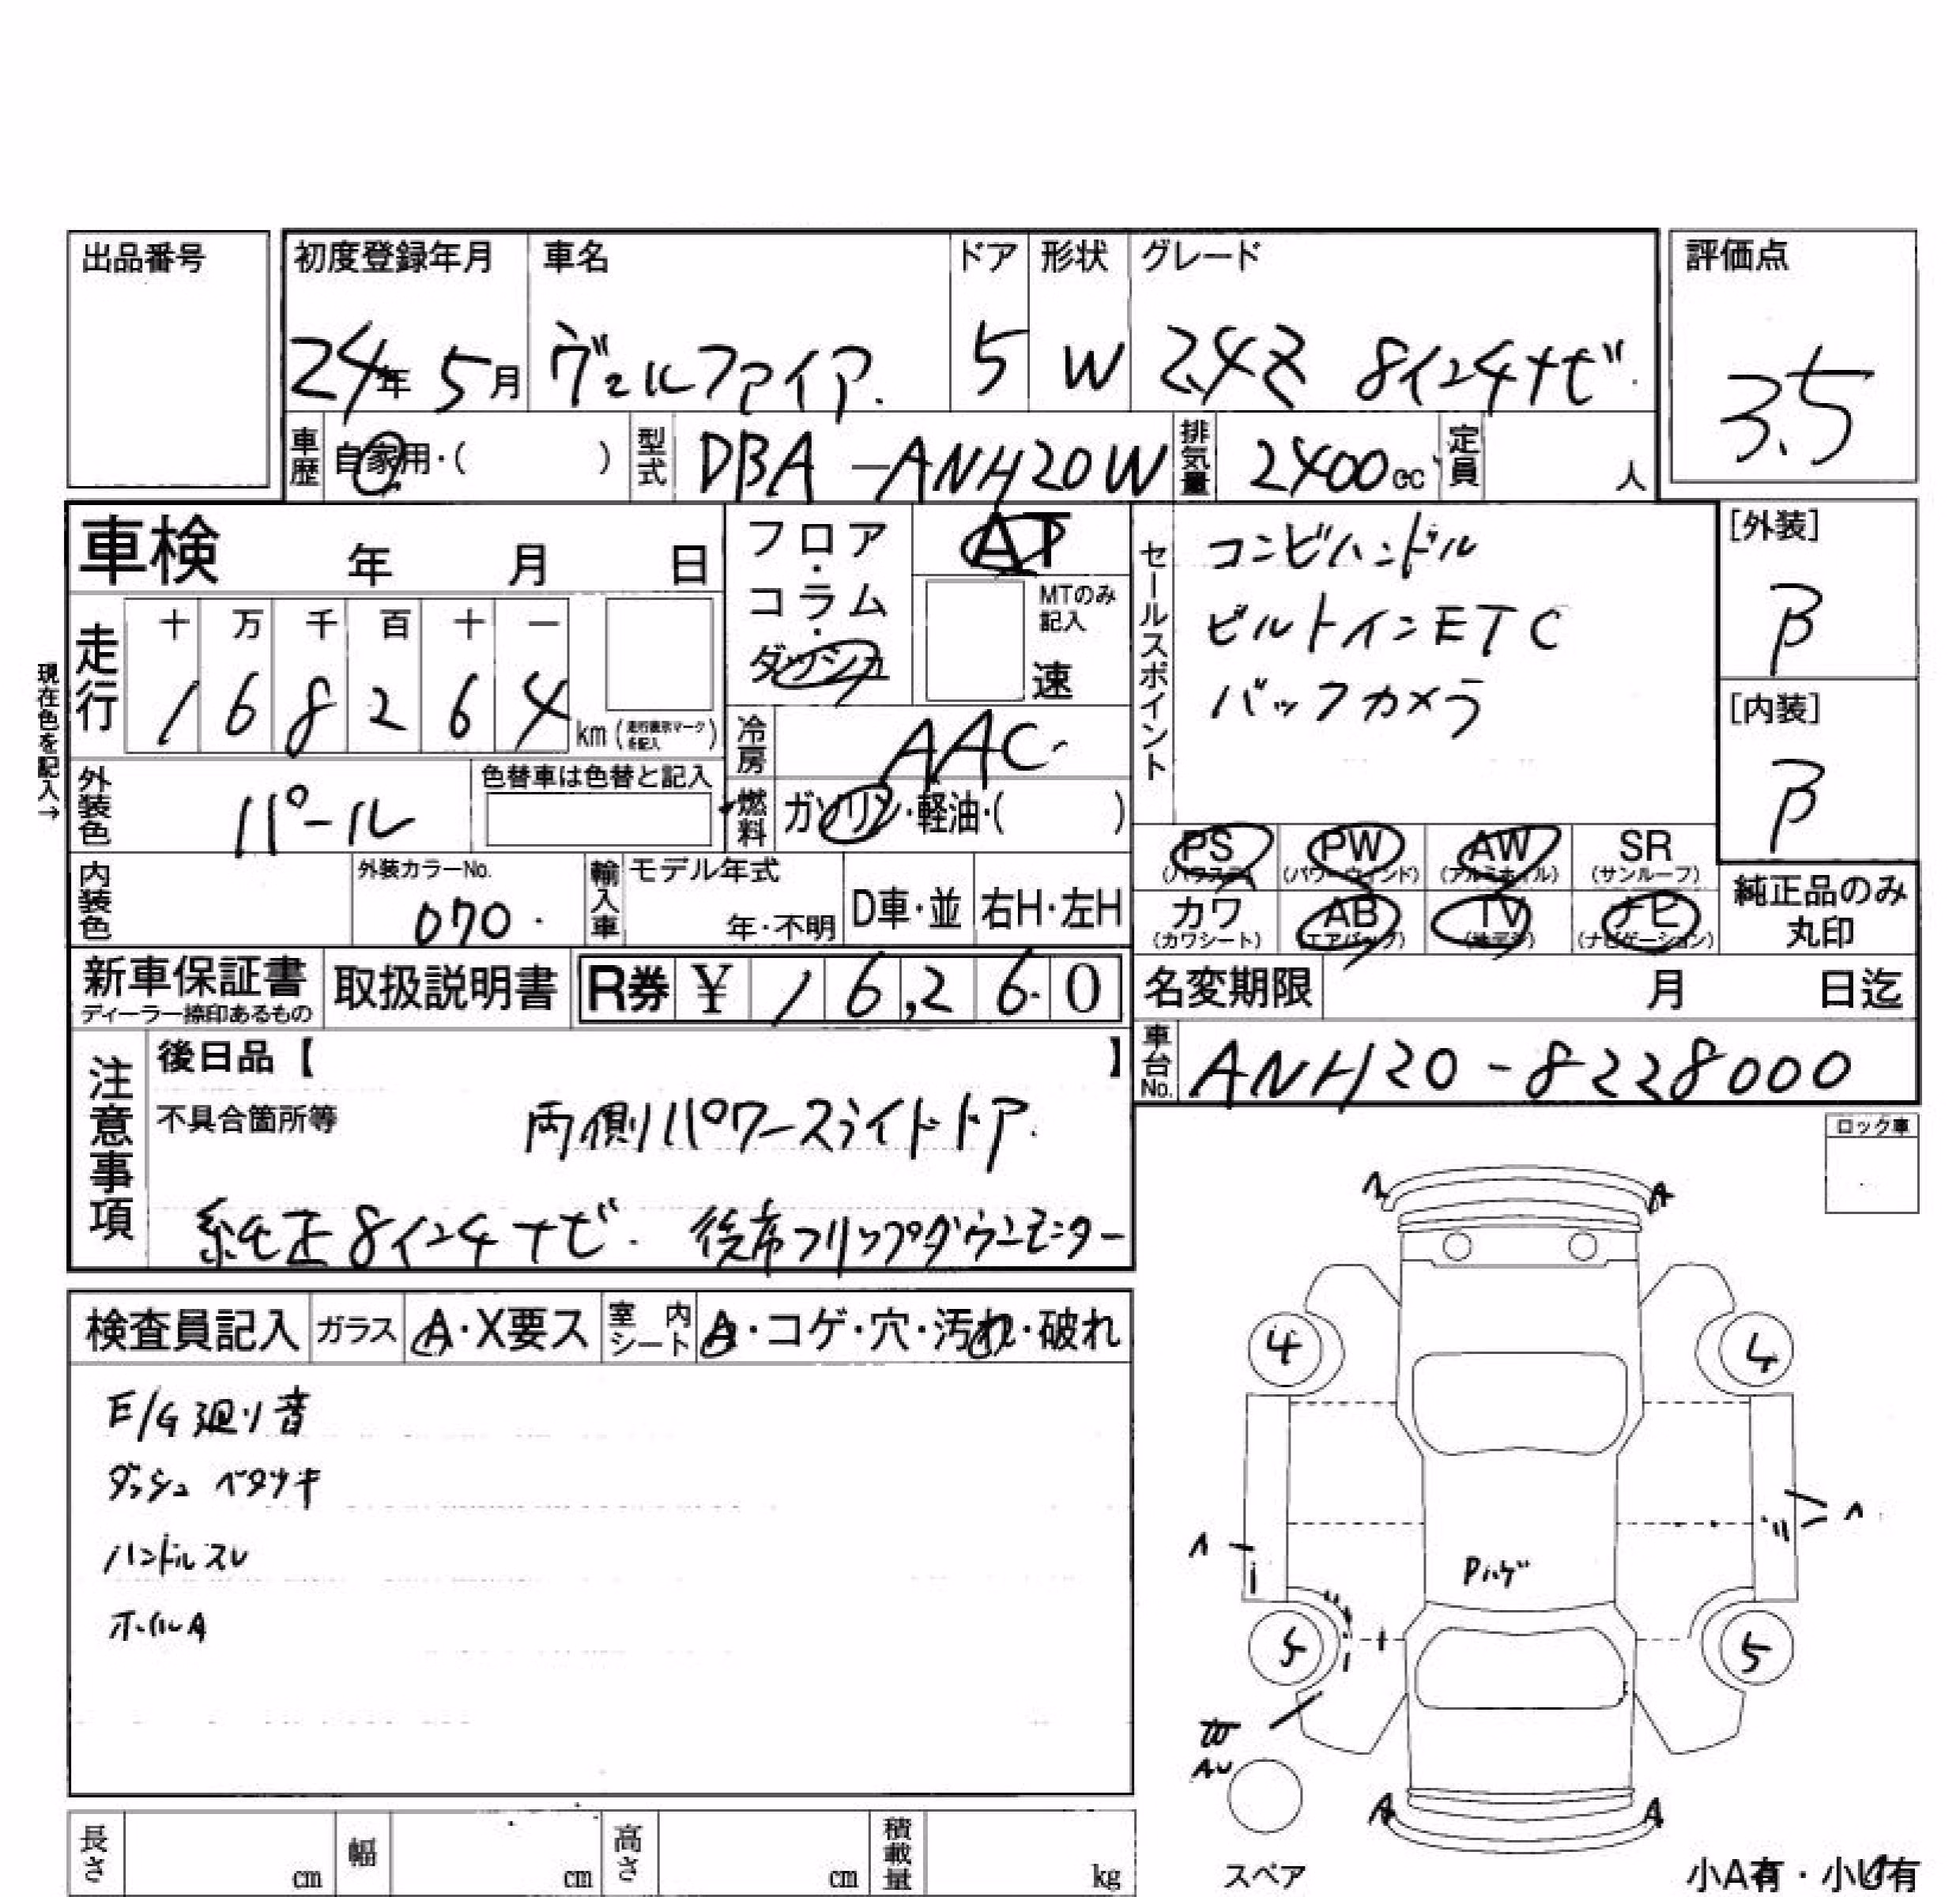 出品番号
初度登録年月 車名 ドア 形状 グレード
評価点
24年 5月 ヴェルファイア. 5 W 2.4Z 8インチナビ.
3.5
車歴 自家用・( ) 型式 DBA-ANH20W 排気量 2400cc 定員 人
車検 年 月 日
フロア・コラム・ダッシュ
AT
MTのみ記入
速
セールスポイント
コンビハンドル
ビルトインETC
バックカメラ
[外装]
B
[内装]
B
現在色を記入→
走行 十 万 千 百 十 一
1 6 8 2 6 4 km (走行表示マークを記入)
冷房 AAC
外装色 パール 色替車は色替と記入
燃料 ガソリン・軽油・( )
PS (パワステ) PW (パワーウィンド) AW (アルミホイル) SR (サンルーフ)
カワ (カワシート) AB (エアバッグ) TV (地デジ) ナビ (ナビゲーション)
純正品のみ丸印
内装色 外装カラーNo. 070. 輸入車 モデル年式 年・不明 D車・並 右H・左H
新車保証書 ディーラー捺印あるもの 取扱説明書 R券 ¥ 16,260
名変期限 月 日迄
車台No. ANH20-8228000
注意事項
後日品【 】
不具合箇所等 両側パワースライドドア.
純正8インチナビ. 後席フリップダウンモニター
ロック車
検査員記入 ガラス A・X要ス 室内シート A・コゲ・穴・汚れ・破れ
E/G廻り音
ダッシュ ベタツキ
ハンドルスレ
ホイルA
A A
4 4
A A
Pハゲ
5 5
AU
A A
スペア
小A有・小U有
長さ cm 幅 cm 高さ cm 積載量 kg